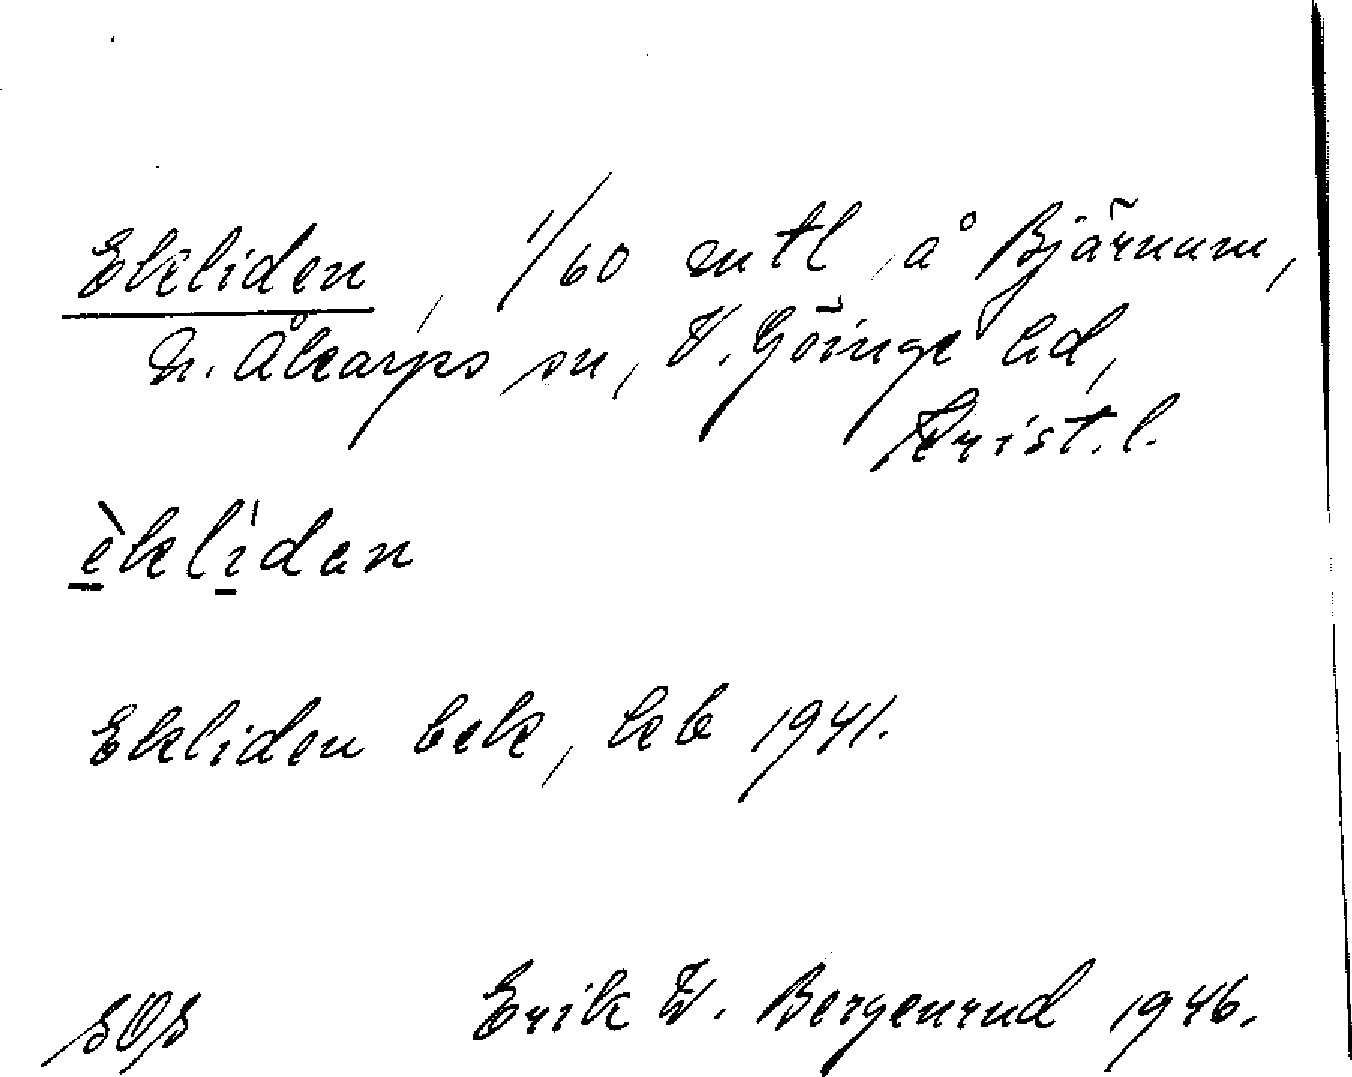 Ekliden, 1/60 mtl, å Bjärnum,
N. Åkarps sn, V. Göinge hd,
Krist. l.
èklidan
Ekliden bek, hcb 1941.
SOS Erik W. Bergenrud 1946.